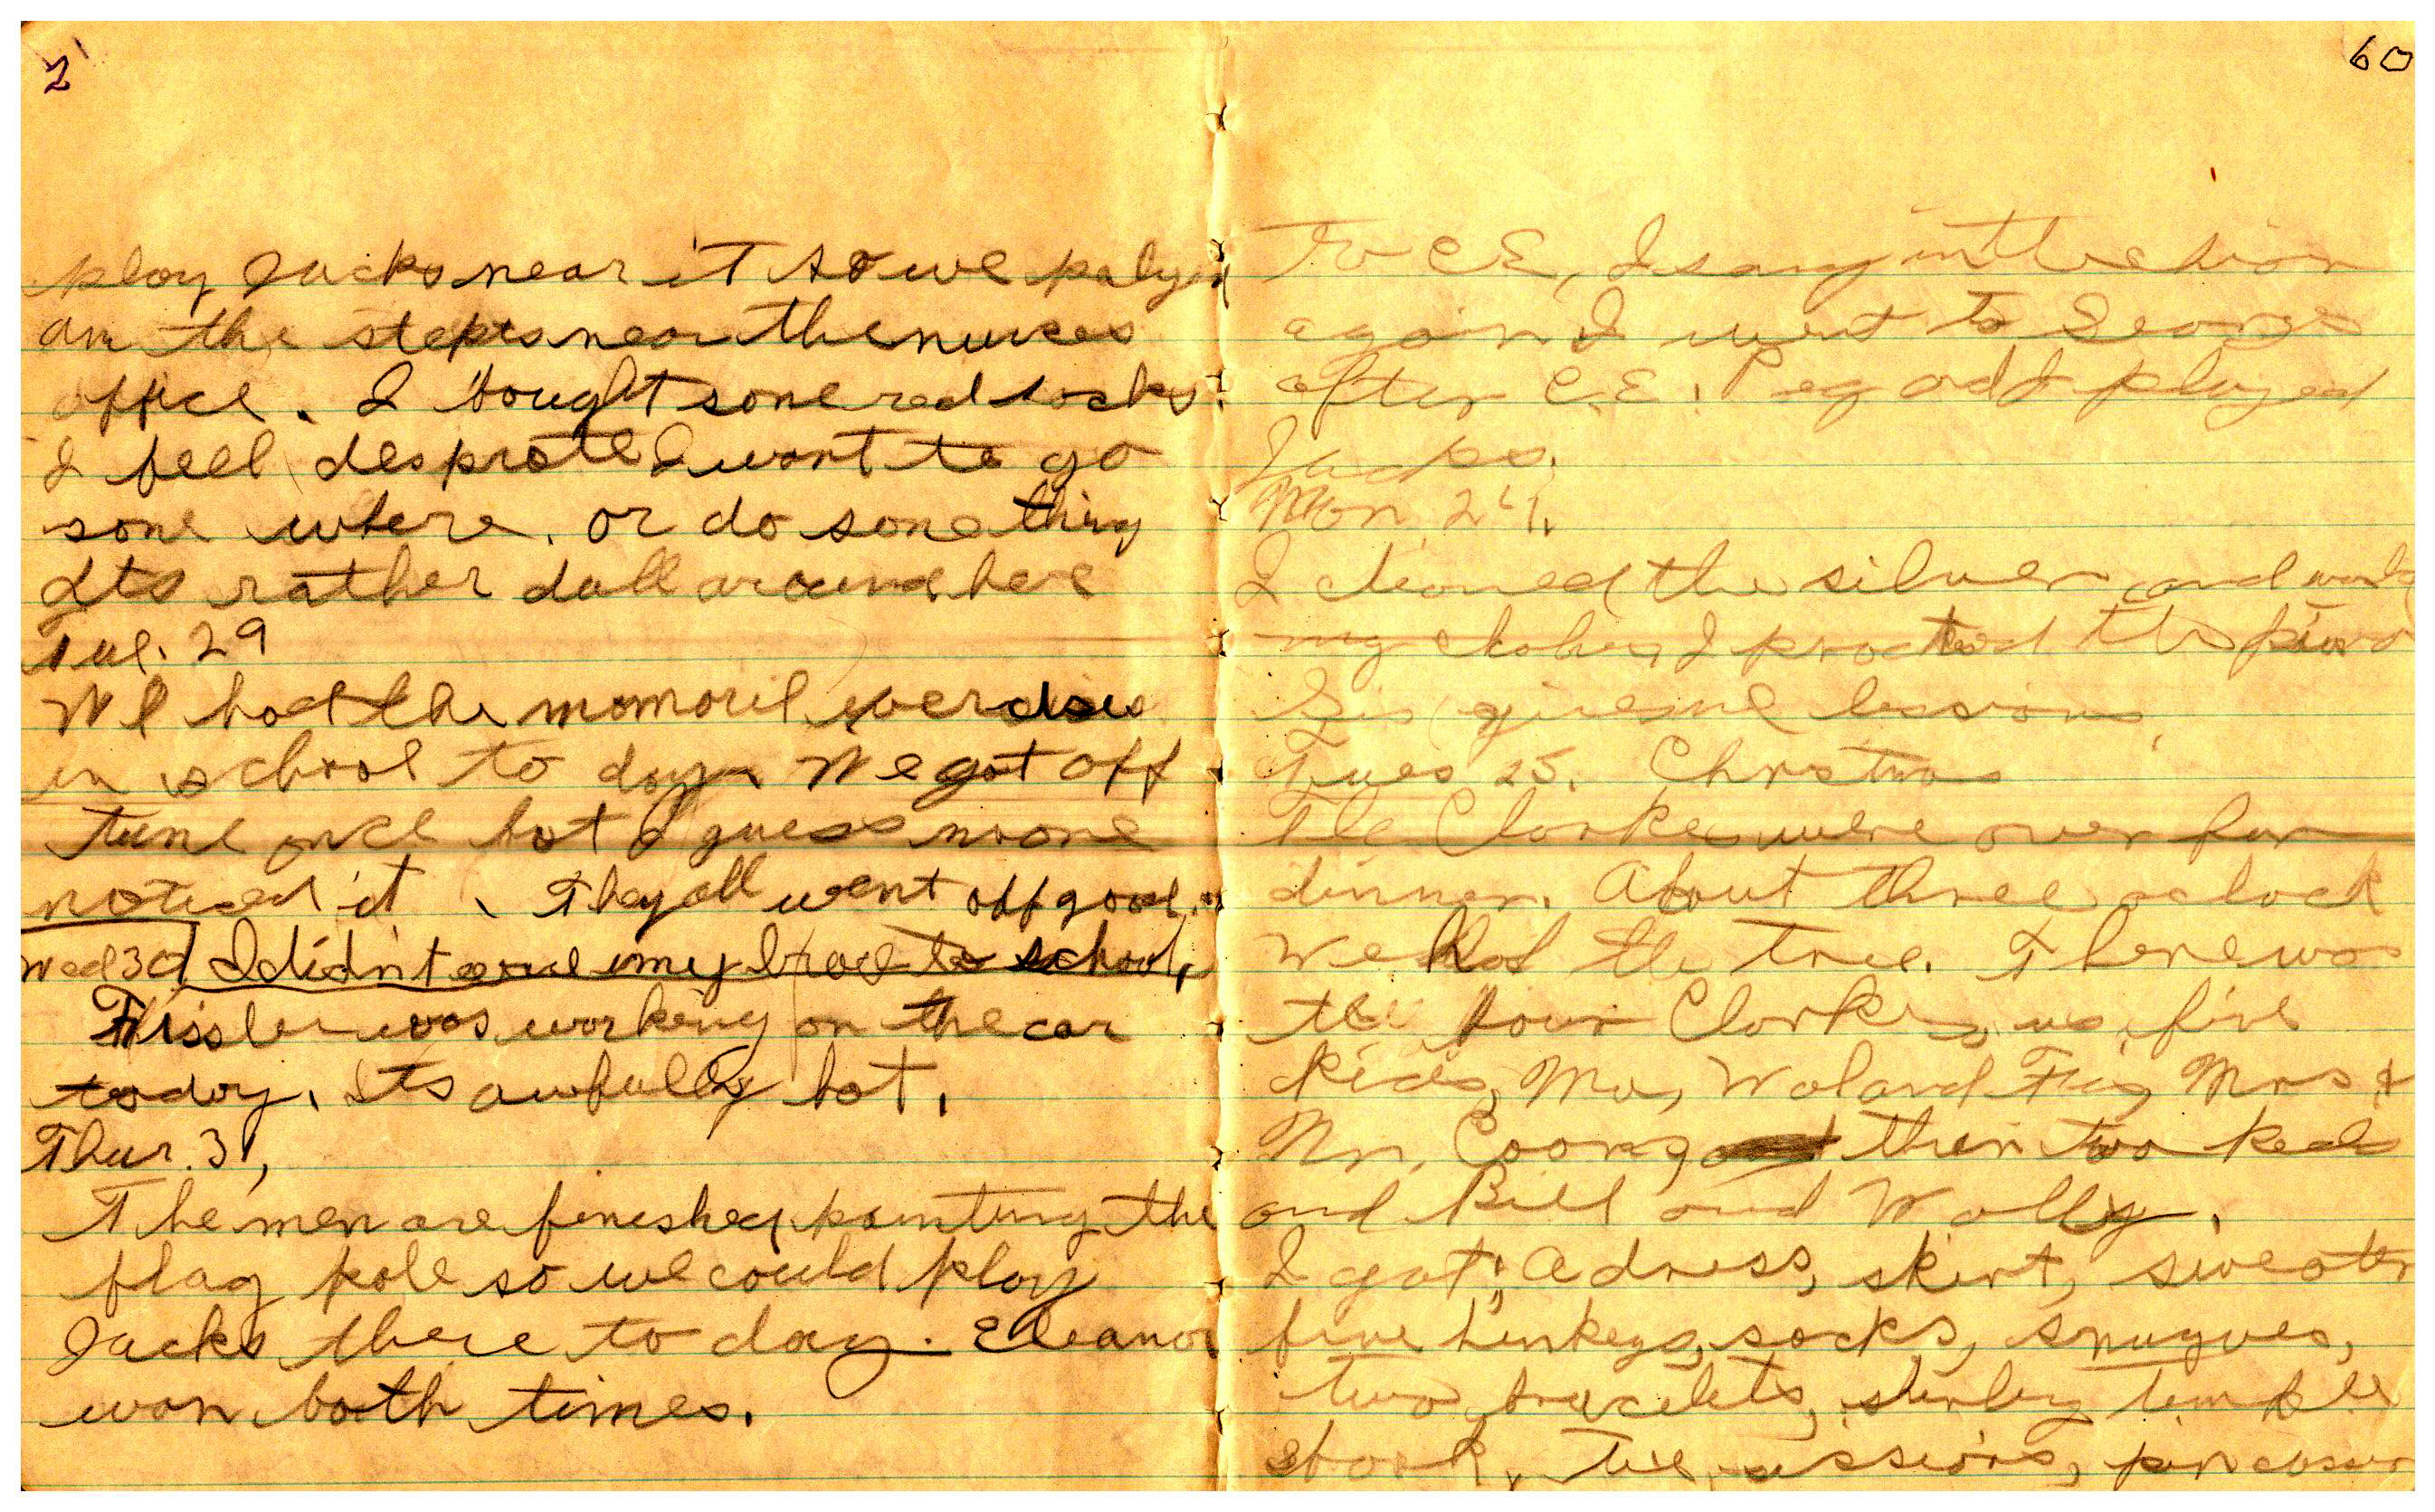 2
play Jacks near iT so we palyed
on the steps near the nurses
office. I bought some red socks.
I feel desprate I want to go
some where. or do some thing
Its rather dull around here
Tue. 29
We had the momoril exercises
in school to day. We got off
tune once but I guess noone
noticed it. They all went off good.
Wed 30 I didn't my to school,
Fissler was working on the car
today. Its awfully hot.
Thur. 31,
The men are fineshed painting the
flag pole so we could play
Jacks there to day. Eleanor
won both times.
60
To C.E, I sang in the chior
again I went to Georges
after C.E. Peg ad I played
Jacks.
Mon. 24.
I cleaned the silver and
my I the piano
Sis giveing me lessons.
Tues 25. Christmas
The Clarkes were over for
dinner. About three oclock
we had the tree. There was
the four Clarkes, us five
kids, Ma, Wolard Fis, Mrs &
Mr. and their two keds
and Bill and Wally.
I got; A dress, skirt, sweater
five henkeys, socks, snugves,
two bracelets, shirley temple
book, scissiors,